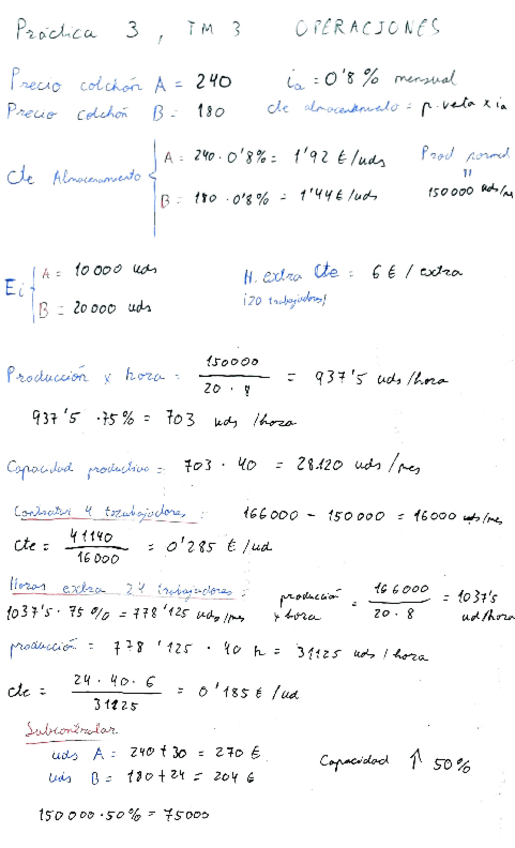 Práctica 3, TM 3 OPERACIONES
Precio colchón A = 240 ia = 0'8% mensual
Precio colchón B = 180 cte almacenamiento = p. venta x ia
Cte Almacenamiento { A = 240 · 0'8% = 1'92 €/uds Prod normal
B = 180 · 0'8% = 1'44 €/uds 150000 uds/mes
Ei { A = 10000 uds H. extra Cte = 6 € / extra
B = 20000 uds ¡20 trabajadores!
Producción x hora = 150000 / 20 · 8 = 937'5 uds/hora
937'5 · 75% = 703 uds /hora
Capacidad productiva = 703 · 40 = 28.120 uds/mes
Contratar 4 trabajadores: 166000 - 150000 = 16000 uds/mes
Cte = 41140 / 16000 = 0'285 €/ud
Horas extra 24 trabajadores: producción x hora = 166000 / 20 · 8 = 1037'5 ud/hora
1037'5 · 75% = 778'125 uds/mes
producción = 778'125 · 40 h = 31125 uds / hora
cte = 24 · 40 · 6 / 31125 = 0'185 €/ud
Subcontratar
uds A = 240 + 30 = 270 € Capacidad ↑ 50%
uds B = 180 + 24 = 204 €
150000 · 50% = 75000